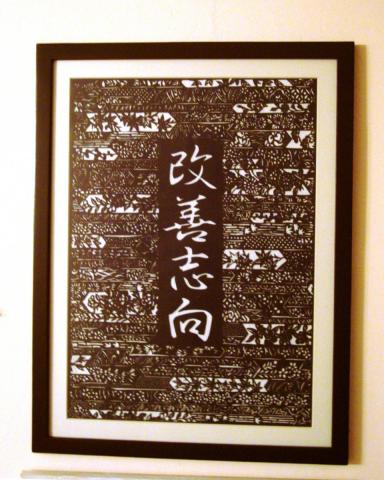 改善志向